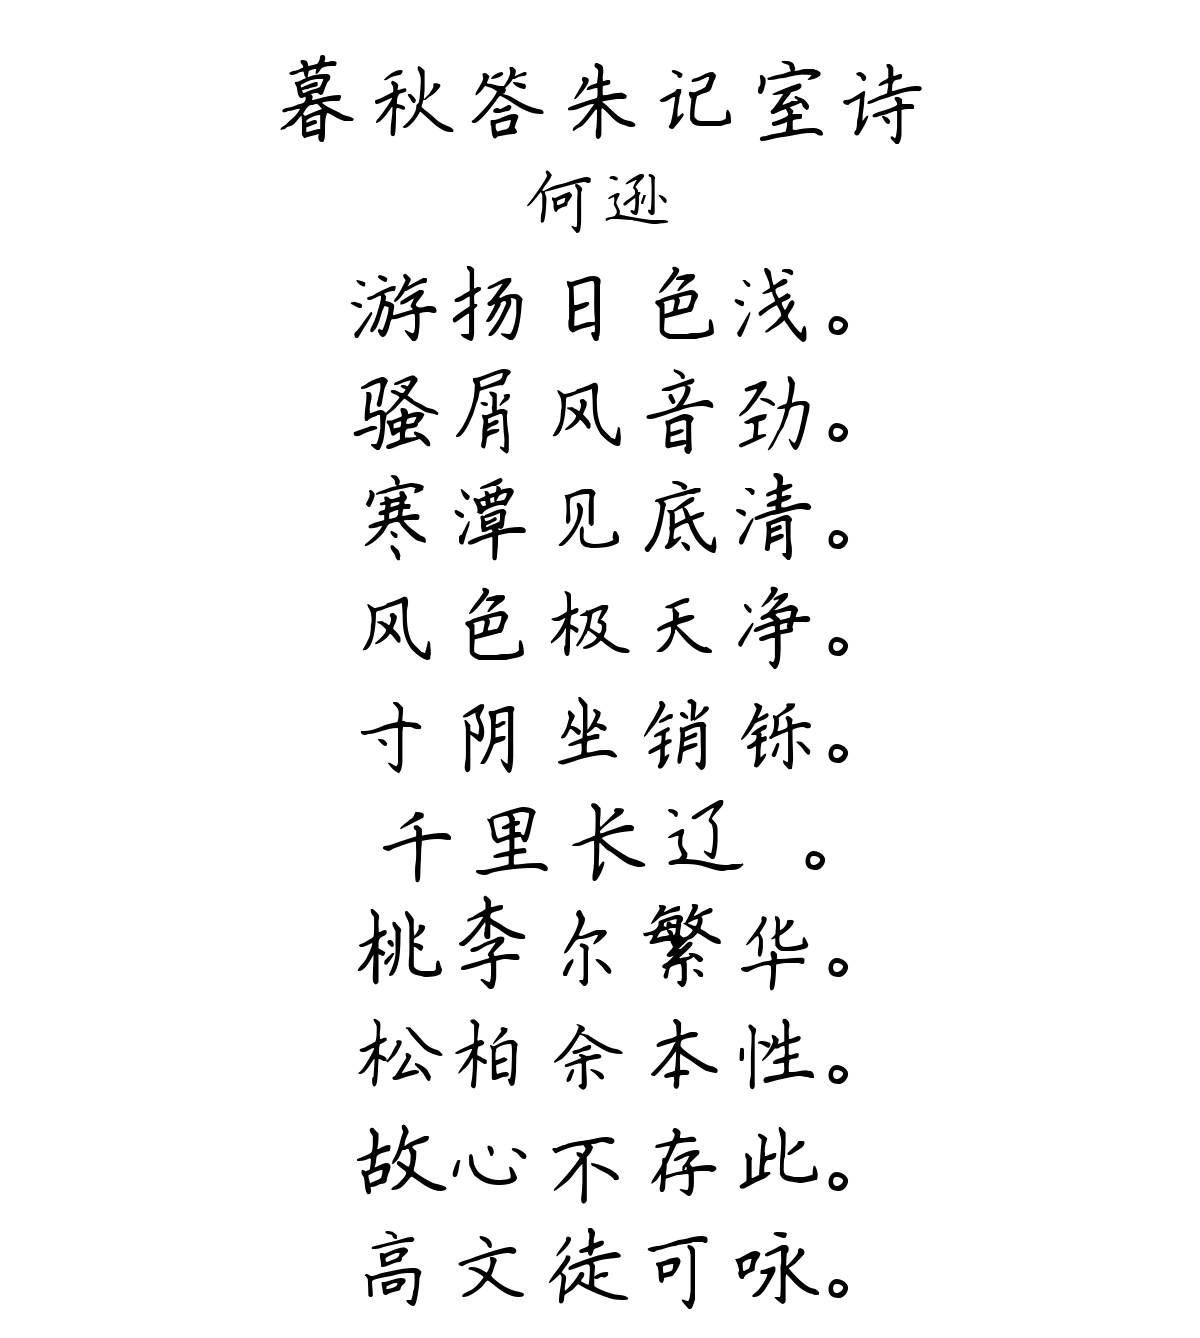 暮秋答朱记室诗
何逊
游扬日色浅。
骚屑风音劲。
寒潭见底清。
风色极天净。
寸阴坐销铄。
千里长辽 。
桃李尔繁华。
松柏余本性。
故心不存此。
高文徒可咏。